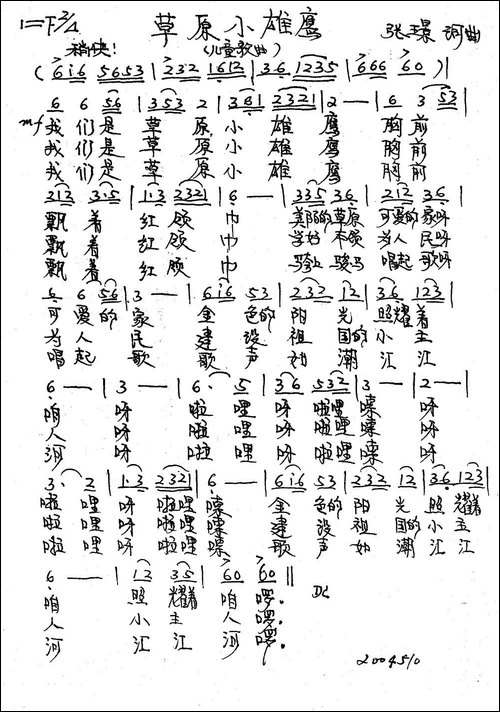 1=F 2/4 草原小雄鹰 张璟 词曲
稍快! (儿童歌曲)
(6 i 6 5653 | 232 1612 | 36 1235 | 666 60) |
6 6 56 | 353 2 | 361 2321 | 2 — | 6 3 53 |
mf 我们是 草 原 小 雄 鹰 胸 前
我们是 草 原 小 雄 鹰 胸 前
我们是 草 原 小 雄 鹰 胸 前
212 3·5 | 1·3 2321 | 6 — | 335 36 | 212 36 |
飘 着 红 领 巾 美丽的草原 可爱的家呀
飘 着 红 领 巾 学好本领 为人民呀
飘 着 红 领 巾 骑上骏马 唱起歌呀
6 6 56 | 3 — | 6 i 6 53 | 232 12 | 36 123 |
可 爱 的 家 金 色的 阳 光 照耀着
为 人 民 建 设 祖 国的 小 主
唱 起 歌 歌 声 如 潮 江 江
6 — | 3 — | 6· 5 | 36 532 | 3 — | 2 — |
咱 呀 啦 哩 呀 啦哩 嗦 呀
人 呀 啦 哩 呀 啦哩 嗦 呀
河 呀 啦 哩 呀 啦哩 嗦 呀
3· 2 | 1·3 2321 | 6 — | 6 i 6 53 | 232 12 | 36 123 |
啦 哩 呀 啦哩 嗦 金 色的 阳 光 照 耀着
啦 哩 呀 啦哩 嗦 建 设 祖 国的 小 主
啦 哩 呀 啦哩 嗦 歌 声 如 潮 江 江
6 — | 12 35 | 60 60 ||
咱 照 耀着 咱 啰。 DC
人 小 主 人 啰。
河 江 江 河 啰。
2004510